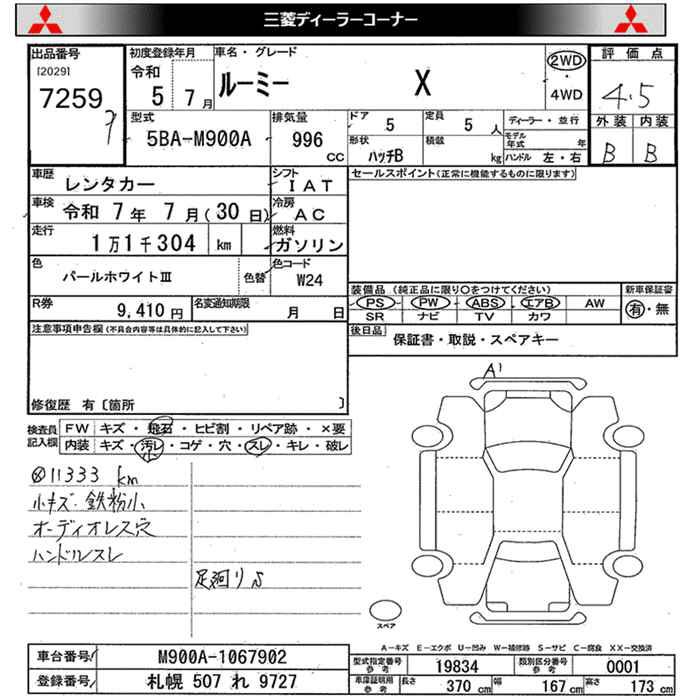 三菱ディーラーコーナー
出品番号
[2029]
7259
7
初度登録年月
令和
5 7月
車名・グレード
ルーミー X
2WD
・
4WD
評価点
4.5
外装 内装
B B
型式
5BA-M900A
排気量
996
CC
ドア 5
定員 5 人
形状 ハッチB
積載 kg
ディーラー・並行
モデル年式 年
ハンドル 左・右
車歴 レンタカー
シフト IAT
車検 令和 7年 7月(30日)
冷房 AC
走行 1万1千304 km
燃料 ガソリン
色 パールホワイトⅢ 色替
色コード W24
R券 9,410円
名変通知期限 月 日
セールスポイント(正常に機能するものに限ります)
装備品(純正品に限り○をつけてください) 新車保証書
PS PW ABS エアB AW 有・無
SR ナビ TV カワ
後日品 保証書・取説・スペアキー
注意事項申告欄(不具合内容等は具体的に記入して下さい)
修復歴 有〔箇所 〕
検査員記入欄
FW キズ・飛石・ヒビ割・リペア跡・×要
内装 キズ・汚レ・コゲ・穴・スレ・キレ・破レ
小
⊗11333 km
小キズ・鉄粉小
オーディオレス穴
ハンドルスレ
足廻りS
A1
スペア
A-キズ E-エクボ U-凹み W-補修跡 S-サビ C-腐食 XX-交換済
車台番号 M900A-1067902
登録番号 札幌 507 れ 9727
型式指定番号 参考 19834
類別区分番号 参考 0001
車庫証明用 参考 長さ 370 cm 幅 167 cm 高さ 173 cm